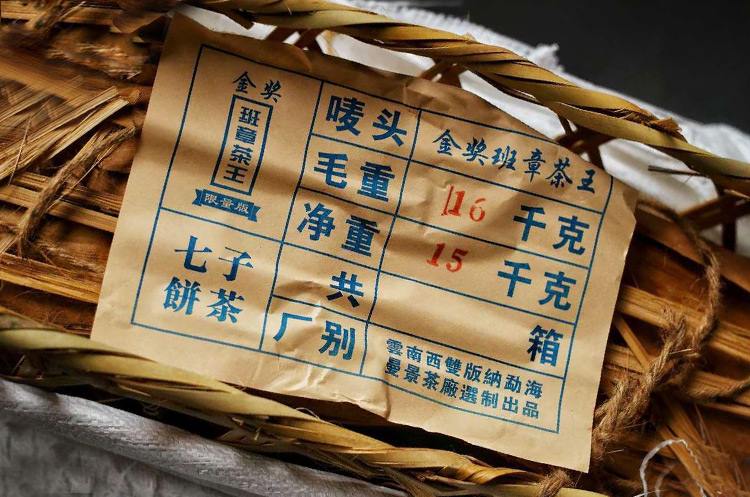 金奖
班章茶王
限量版
七子
餅茶
唛头
金奖班章茶王
毛重
16 千克
净重
15 千克
共
箱
厂别
雲南西雙版納勐海
曼景茶廠選制出品